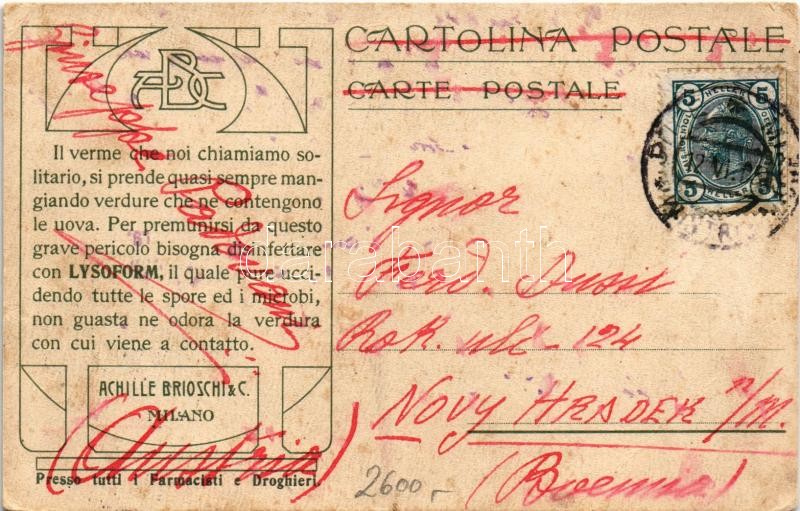 ABC
Il verme che noi chiamiamo so-
litario, si prende quasi sempre man-
giando verdure che ne contengono
le uova. Per premunirsi da questo
grave pericolo bisogna disinfettare
con LYSOFORM, il quale pure ucci-
dendo tutte le spore ed i microbi,
non guasta ne odora la verdura
con cui viene a contatto.
ACHILLE BRIOSCHI & C.
MILANO
Presso tutti i Farmacisti e Droghieri.
Giuseppe
(Austria)
CARTOLINA POSTALE
CARTE POSTALE
5 HELLER 5
5 HELLER 5
Signor
Ferd.
Rok. ulc 124
NOVY HRADEK n/M.
(Boemia)
2600,-
darabanth